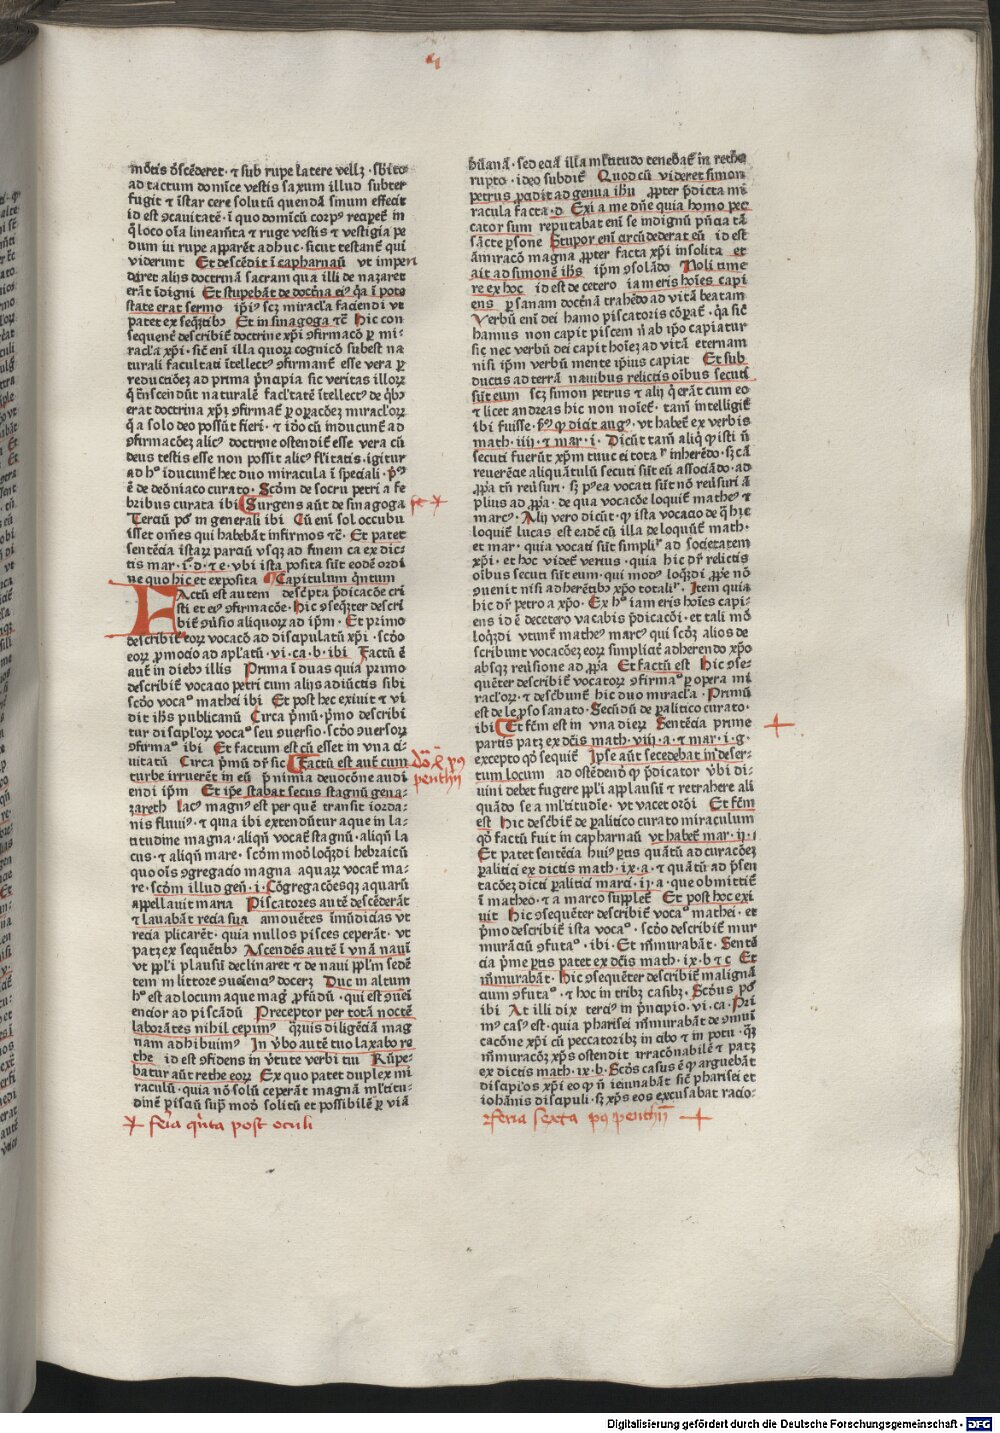 mōtis dscēderet · ⁊ sub rupe latere vellꝫ · sbito
ad tactum domīce vestis saxum illud subter
fugit ⁊ istar cere solutū quendā sinum effecit
id est ꝯcauitatē · ī quo domīcū corpꝰ recepet in
q̄ loco oīa lineamta ⁊ ruge vestis ⁊ vestigia pe
dum iu rupe apparēt adhuc · sicut testant̄ qui
viderunt Et descēdit ī capharnaū vt imperi
diret alijs doctrinā sacram qua illi de nazaret
erāt īdigni Et stupebāt de doctrīa eiꝰ qꝛ ī pote
state erat sermo ip̄iꝰ scꝫ miracl̓a faciendi vt
patet ex seq̄tibꝫ Et in sinagoga ⁊c̄ Hic con
sequent̄ describit̄ doctrine xp̄i ꝯfirmacō ꝑ mi⸗
racl̓a xp̄i · sic̄ enī illa quoꝝ cognicō subest na
turali facultati ītellectꝰ ꝯfirmant̄ esse vera ꝑ
reductiōeꝫ ad prima pͥncipia sic veritas illoꝝ
q̄ trīscendūt naturalē facl̓tatē ītellectꝰ de qͥbꝫ
erat doctrina xp̄i ꝯfirmat̄ ꝑ oꝑacōeꝫ miracl̓oꝝ
qꝛ a solo deo possūt fieri · ⁊ idō cū inducunt̄ ad
ꝯfirmacōeꝫ alicꝰ doctrine ostendit̄ esse vera cū
deus testis esse non possit alicꝰ fl̓itatis · igitur
ad hͦ iducunt̄ hec duo miracula ī speciali · pͥꝰ
ē de demōniaco curato · Scōm de socru petri a fe
bribus curata ibi Surgens aūt de sinagoga
Terciū pꝰ in generali ibi Cū enī sol occubu
isset om̄es qui habebāt infirmos ⁊c̄ · Et patet
sentēcia istaꝝ parciū vsqꝫ ad finem ca ex dic⸗
tis mar · i · d · ⁊ e · vbi ista posita sūt eodē ordi
ne quo hic et exposita Capitulum qͥntum
FActū est autem descͥpta pͥdicacōe cri
sti et eiꝰ ꝯfirmacōe · hic ꝯseqͣter descri
bit̄ ꝯūsio aliquoꝝ ad ip̄m · Et primo
describit̄ eoꝝ vocacō ad discipulatū xp̄i · scd̓o
eoꝝ ꝓmocio ad apl̓atū · vi · ca · b · ibi Factū ē
aut̄ in diebꝫ illis Prima ī duas quia primo
describit̄ vocacio petri cum alijs adiūctis sibi
scd̓o vocaͦ mathei ibi Et post hec exiuit ⁊ vi
dit ih̄s publicanū Circa pͥmū · pͥmo describi
tur discipl̓oꝝ vocaͦ seu ꝯuersio · scd̓o ꝯuersoꝝ
ꝯfirmaͦ ibi Et factum est cū esset in vna ci⸗
uitatū Circa pͥmū dr̄ sic Factū est aut̄ cum
turbe irruerēt in eū pͥ nimia deuocōne audi
endi ip̄m Et ip̄e stabat secus stagnū gena⸗
zareth lacꝰ magnꝰ est per quē transit iorda⸗
nis fluuiꝰ · ⁊ qꝛ ibi extendūtur aque in la⸗
titudine magna · aliqn̄ vocat̄ stagnū · aliqn̄ la
cus · ⁊ aliqn̄ mare · scd̓m mod̄ loqn̄di hebraicū
quo oīs ꝯgregacio magna aquaꝝ vocat̄ ma⸗
re · scd̓m illud gen̄ · i · Cōgregacōesqꝫ aquarū
appellauit maria Piscatores autē descēderāt
⁊ lauabāt recia sua amouētes īmūdicias vt
recia plicarēt · quia nullos pisces ceperāt · vt
patꝫ ex sequētibꝫ Ascendēs autē ī vnā nauī
vt ppl̓i plausū declinaret ⁊ de naui ppl̓m sedē
tem in littore ꝯueīenciꝰ doceꝫ Duc in altum
hͦ est ad locum aque magꝭ ꝓfūdū · qui est ꝯueī
encior ad piscādū Preceptor per totā noctē
laborātes nihil cepimꝰ qͣꝫuis diligēciā mag
nam adhibuimꝰ In v̓bo autē tuo laxabo re
the id est ꝯfidens in v̓tute verbi tui Rūpe⸗
batur aūt rethe eoꝝ Ex quo patet duplex mi
raculū · quia nō solū ceperāt magnā ml̓titu⸗
dinē pisciū supͣ modū solitū et possibilē ꝑ viā
✝ feria qͥnta post oculi
hūanā · sed eciā illa ml̓titudo tenebat̄ in rethe
rupto · ideo subdit̄ Quod cū videret simon
petrus ꝓcidit ad genua ih̄u ꝓpter pͥdicta mi
racula facta · d Exi a me dn̄e quia homo pec
cator sum reputabat enī se indignū pn̄cia tā
sācte ꝑsone Stupor enī circūdederat eū id est
āmiracō magna ꝓpter facta xp̄i insolita et
ait ad simonē ih̄s ip̄m ꝯsolādo Noli time
re ex hoc id est de cetero iam eris hoīes capi
ens ꝑ sanam doctrīā trahēdo ad vitā beatam
Verbū enī dei hamo piscatoris cōꝑat̄ · qꝛ sic̄
hamus non capit piscem nͥ ab ip̄o capiatur
sic nec verbū dei capit hoīeꝫ ad vitā eternam
nisi ip̄m verbū mente ip̄ius capiat Et sub
ductis ad terrā nauibus relictis oībus secuti
sūt eum scꝫ simon petrus ⁊ alij qͥ erāt cum eo
⁊ licet andreas hic non noīet̄ · tamē intelligit̄
ibi fuisse · pͥꝰ qꝫ dicit augꝰ · vt habet̄ ex verbis
math · iiij · ⁊ mar · i · Dicūt tamē aliqͥ ꝙ isti nō
secuti fuerūt xp̄m tunc ei totalͥ inherēdo · sꝫ cā
reuerēcie aliquātulū secuti sūt eū associādo · ad
ꝓpͥa tn̄ reūsuri · sꝫ pꝰea vocati sūt nō reūsuri ā
plius ad ꝓpͥa · de qua vocacōe loquit̄ matheꝰ ⁊
marcꝰ · Alij vero dicūt · ꝙ ista vocacio de q̄ hic
loquit̄ lucas est eadē cū illa de loquūt̄ math ·
et mar · quia vocati sūt simplͥr ad societatem
xp̄i · et hoc videt̄ verius · quia hic dr̄ relictis
oībus secuti sūt eum · qui modꝰ loqn̄di ꝓpͥe nō
ꝯuenit nisi adherētibꝫ xp̄o totalͥr · Item quia
hic dr̄ petro a xp̄o · Ex hͦ iam eris hoīes capi⸗
ens id ē decetero vacabis pͥdicacōi · et tali mō
loqn̄di vtunt̄ matheꝰ marcꝰ qui scd̓ꝫ alios de
scribunt vocacōeꝫ eoꝝ simplicit̄ adherendo xp̄o
absqꝫ reūsione ad ꝓpͥa Et factū est Hic ꝯse⸗
quēter describit̄ vocatoꝝ ꝯfirmaͦ ꝑ opera mi
racl̓oꝝ · ⁊ descͥbunt̄ hic duo miracl̓a · Primū
est de lepͦso sanato · Secūdū de palitico curato ·
ibi Et fc̄m est in vna dieꝝ Sentēcia prime
partis patꝫ ex dc̄is math · viij · a · ⁊ mar · i · g ·
excepto qd̓ sequit̄ Ipse aūt secedebat in deser⸗
tum locum ad ostēdendū ꝙ pͥdicator v̓bi di⸗
uini debet fugere ppl̓i applausū ⁊ retrahere ali
quādo se a ml̓titudīe · vt vacet orōi Et fc̄m
est Hic descͥbit̄ de palitico curato miraculum
qd̓ factū fuit in capharnaū vt habet̄ mar · ij · i
Et patet sentēcia huiꝰ ꝑtis quātū ad curacōeꝫ
ꝑalitici ex dictis math · ix · a · ⁊ quātū ad pͥsen
tacōeꝫ dicti ꝑalitici marci · ij · a · que obmittit̄
ī matheo · ⁊ a marco supplet̄ Et post hoc exi
uit Hic ꝯsequēter describit̄ vocaͦ mathei · et
pͥmo describit̄ ista vocaͦ · scd̓o describit̄ mur
muracū ꝯfutaͦ · ibi · Et m̄murabāt · Sentē
cia pͥme ꝑtis patet ex dc̄is math · ix · b ⁊ c Et
m̄murabāt · Hic ꝯsequēter describit̄ malignā
cium ꝯfutaͦ · ⁊ hoc in tribꝫ casibꝫ · Scd̓us pꝰ
ibi At illi dix terciꝰ in pͥncipio · vi · ca · Pri
mꝰ casꝰ est · quia pharisei m̄murabāt de ꝯmuni
cacōne xp̄i cū peccatoribꝫ in cibo ⁊ in potu · qͣꝫ
m̄muracōꝫ xp̄s ostendit irracōnabilē ⁊ patꝫ
ex dictis math · ix · b · Scd̓s casus ē ꝙ arguebāt
discipl̓os xp̄i eo ꝙ nō ieiunabāt sic̄ pharisei et
iohānis discipuli · sꝫ xp̄s eos excusabat racio⸗
feria sexta pꝰ penthn̄ ✝
dō x pꝰ
penthn̄